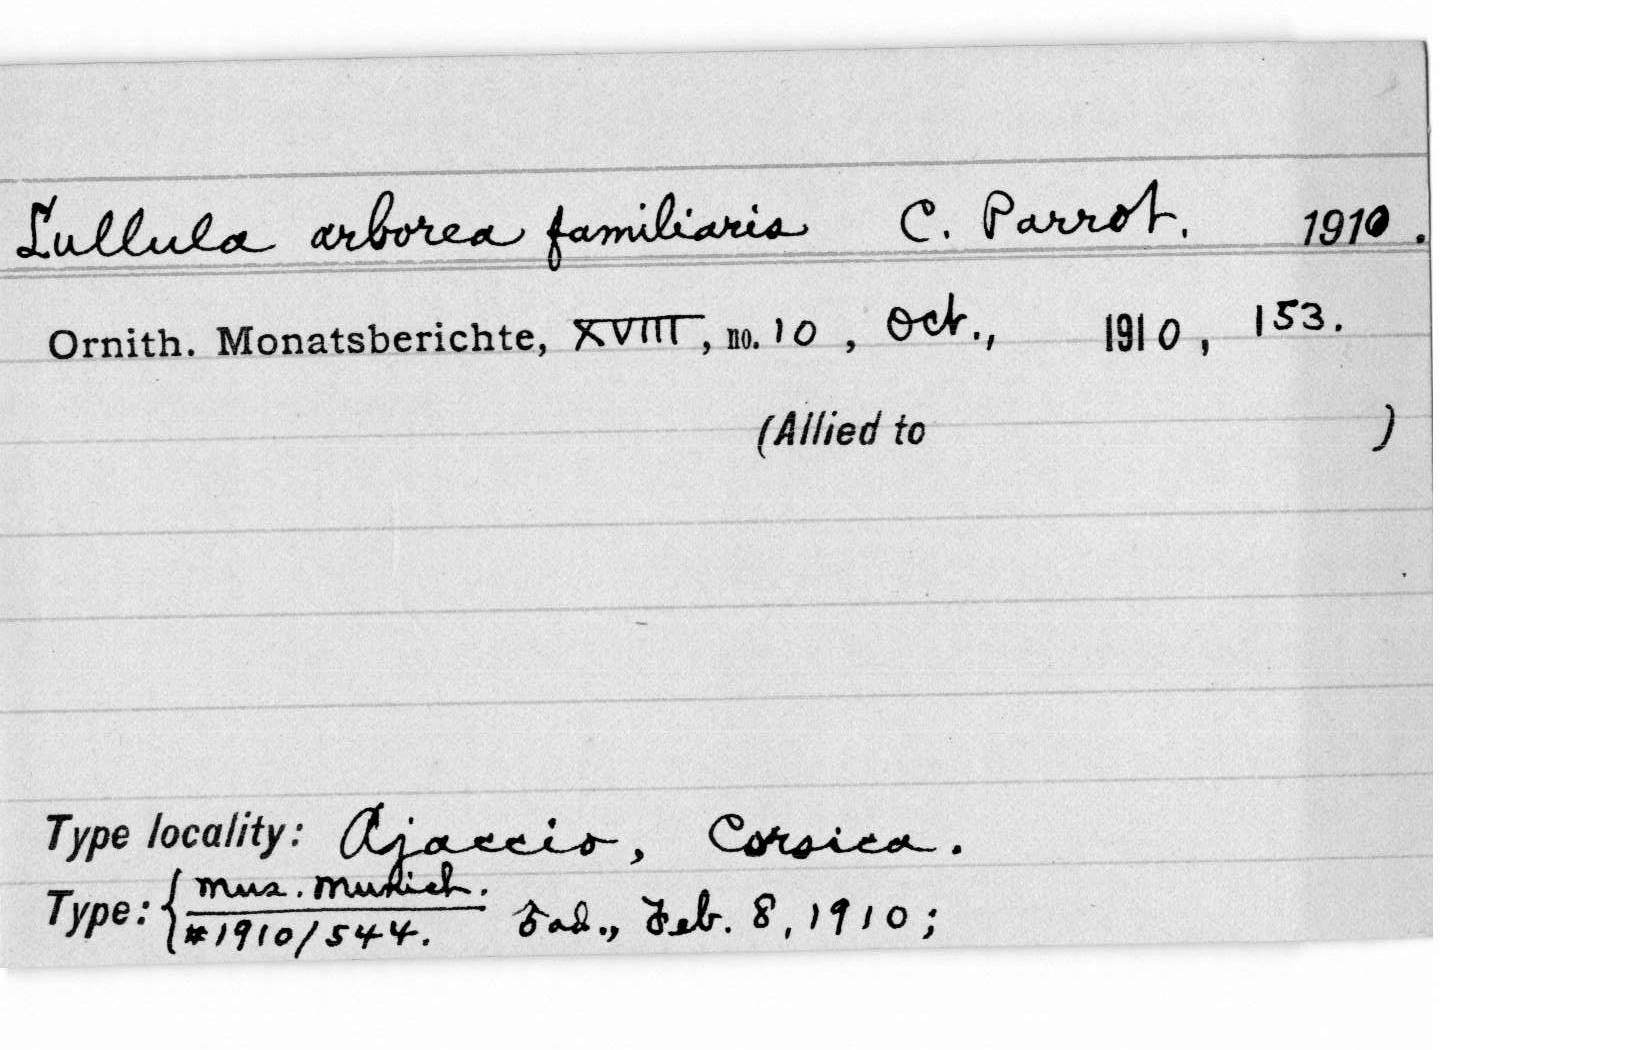 Lullula arborea familiaris C. Parrot. 1910.
Ornith. Monatsberichte, XVIII, no. 10, Oct., 1910, 153.
(Allied to )
Type locality: Ajaccio, Corsica.
Type: { Mus. Munich.
#1910/544. ♂ad., Feb. 8, 1910;